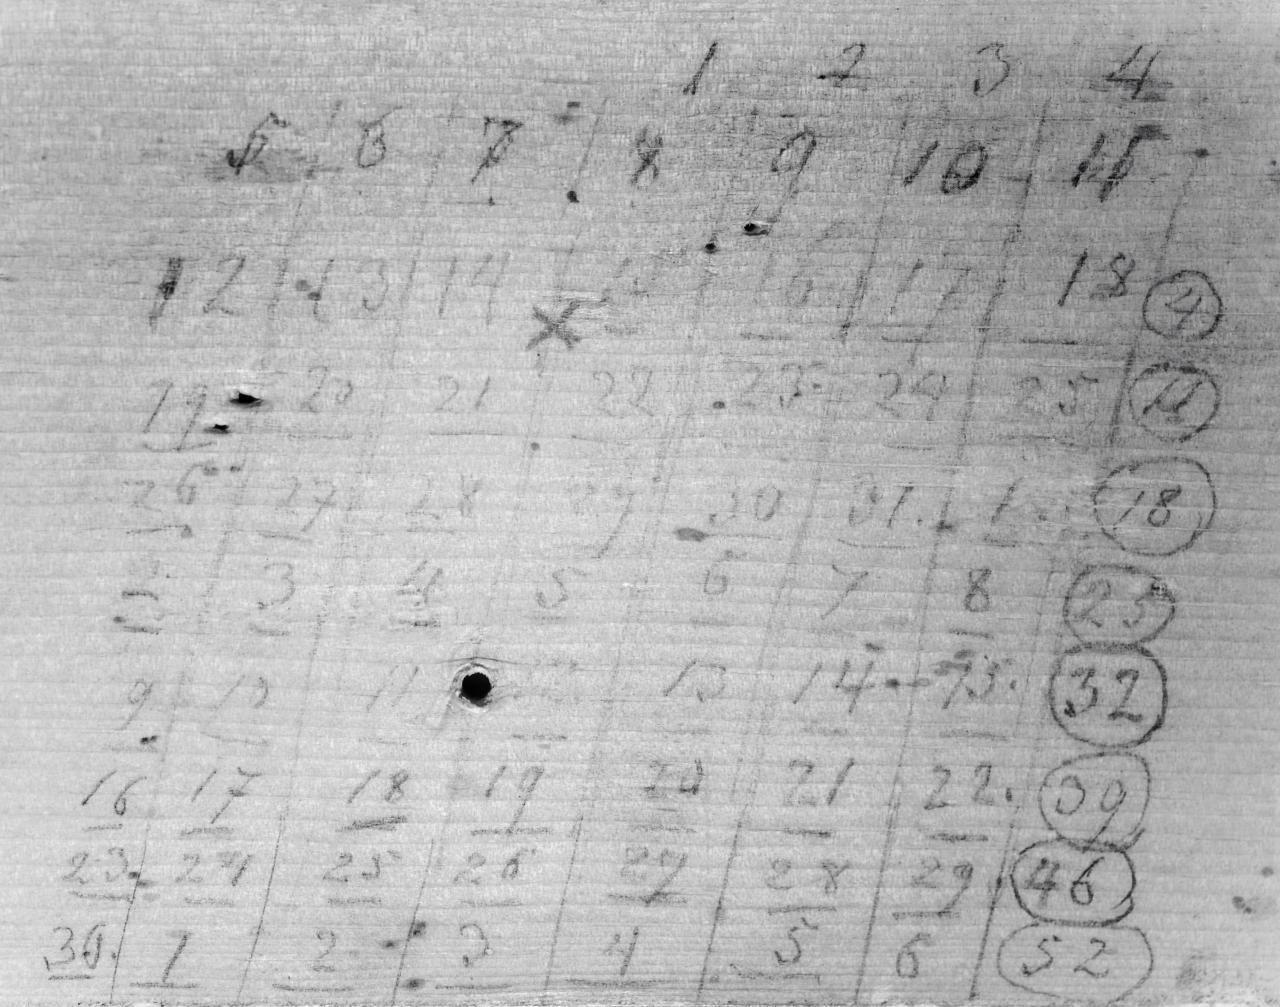 1 2 3 4
5 6 7 8 9 10 11
12 13 14 15 16 17 18 4
19 20 21 22 23 24 25 11
26 27 28 29 30 31 1 18
2 3 4 5 6 7 8 25
9 10 11 13 14 15. 32
16 17 18 19 20 21 22. 39
23. 24 25 26 27 28 29. 46
30. 1 2 3 4 5 6 52